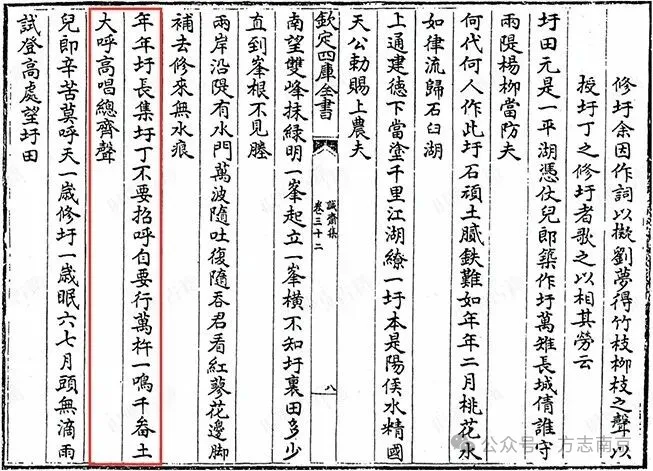 修圩余因作詞以擬劉夢得竹枝柳枝之聲以
授圩丁之修圩者歌之以相其勞云
圩田元是一平湖憑仗兒郎築作圩萬雉長城倩誰守
兩隄楊柳當防夫
何代何人作此圩石頑土膩鉄難如年年二月桃花水
如律流歸石臼湖
上通建德下當塗千里江湖繚一圩本是陽侯水精國
天公勅賜上農夫
欽定四庫全書
誠齋集
卷三十二
八
南望雙峯抹緑明一峯起立一峯橫不知圩裏田多少
直到峯根不見塍
兩岸沿隄有水門萬波隨吐復隨吞君看紅蓼花邊脚
補去修來無水痕
年年圩長集圩丁不要招呼自要行萬杵一鳴千畚土
大呼高唱總齊聲
兒郎辛苦莫呼天一歲修圩一歲眠六七月頭無滴雨
試登高處望圩田
公众号·方志南京